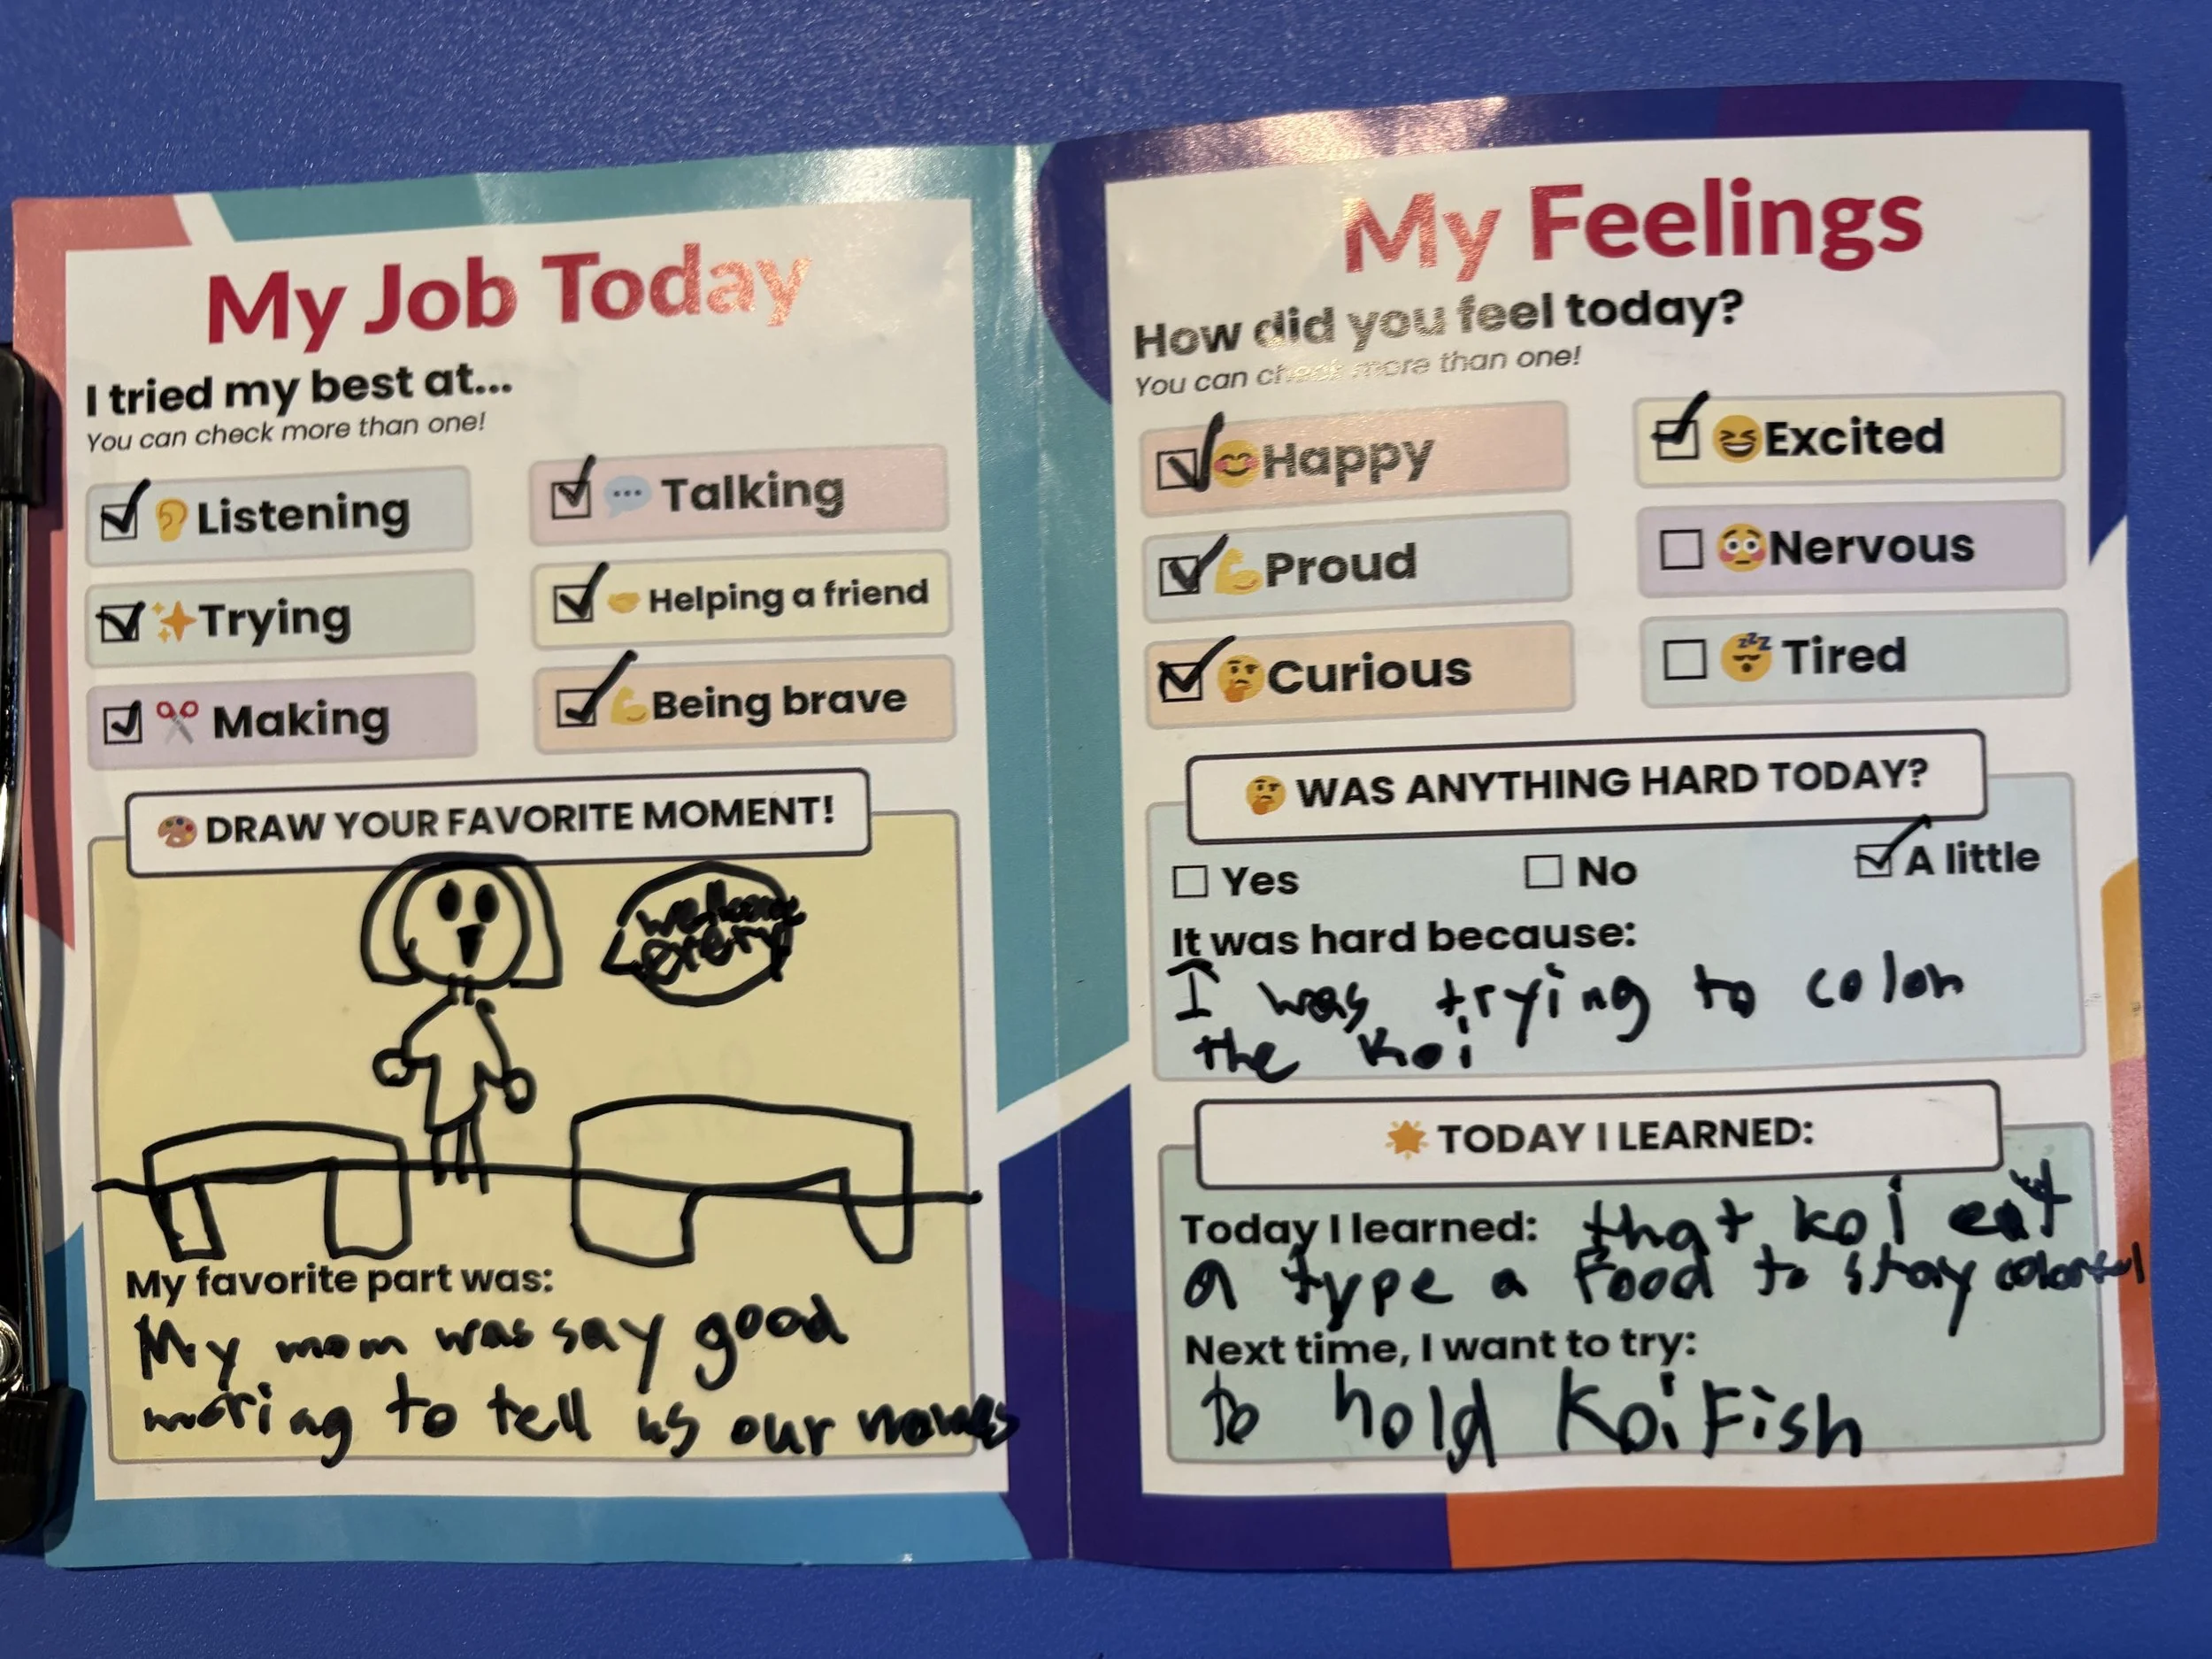 My Job Today
I tried my best at...
You can check more than one!
Listening
Talking
Trying
Helping a friend
Making
Being brave
DRAW YOUR FAVORITE MOMENT!
welcome
every
My favorite part was:
My mom was say good
moring to tell us our names
My Feelings
How did you feel today?
You can check more than one!
Happy
Excited
Proud
Nervous
Curious
Tired
WAS ANYTHING HARD TODAY?
Yes
No
A little
It was hard because:
I was trying to color
the Koi
TODAY I LEARNED:
Today I learned: that koi eat
a type a food to stay colorful
Next time, I want to try:
to hold Koi Fish